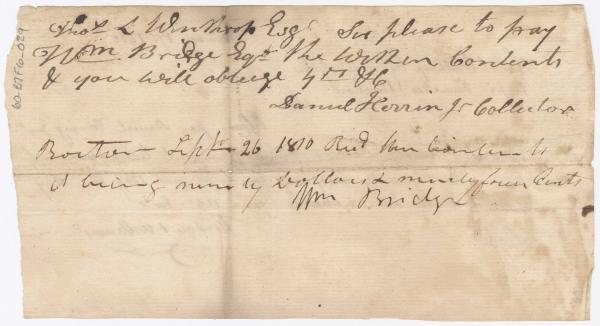 Thos L Winthrop Esqr Sir please to pay
Wm Bridge Esqr the within Contents
& you will obleige yrs &C
Daniel Herrin Jr Collector
Boston Septr 26 1810 Recd the Contents
it being ninety Dollars & ninety four Cents
Wm Bridge
60-BTFG-029